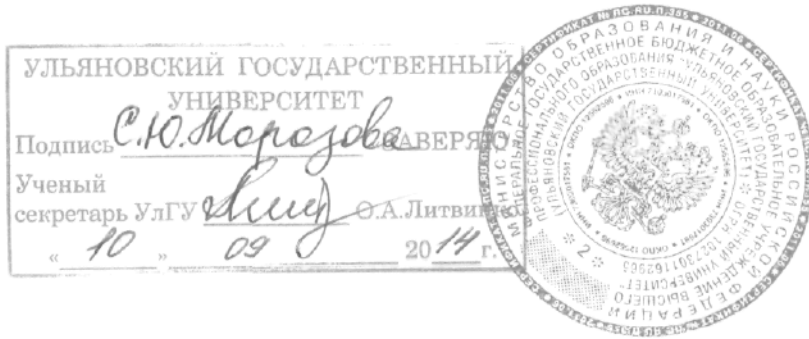 УЛЬЯНОВСКИЙ ГОСУДАРСТВЕННЫЙ
УНИВЕРСИТЕТ
Подпись С.Ю. Морозова ЗАВЕРЯЮ
Ученый
секретарь УлГУ О.А.Литвинко
« 10 » 09 20 14 г.
МИНИСТЕРСТВО ОБРАЗОВАНИЯ И НАУКИ РОССИЙСКОЙ ФЕДЕРАЦИИ
ФЕДЕРАЛЬНОЕ ГОСУДАРСТВЕННОЕ БЮДЖЕТНОЕ ОБРАЗОВАТЕЛЬНОЕ УЧРЕЖДЕНИЕ ВЫСШЕГО
ПРОФЕССИОНАЛЬНОГО ОБРАЗОВАНИЯ "УЛЬЯНОВСКИЙ ГОСУДАРСТВЕННЫЙ УНИВЕРСИТЕТ"
УЛЬЯНОВСКИЙ ГОСУДАРСТВЕННЫЙ УНИВЕРСИТЕТ
2